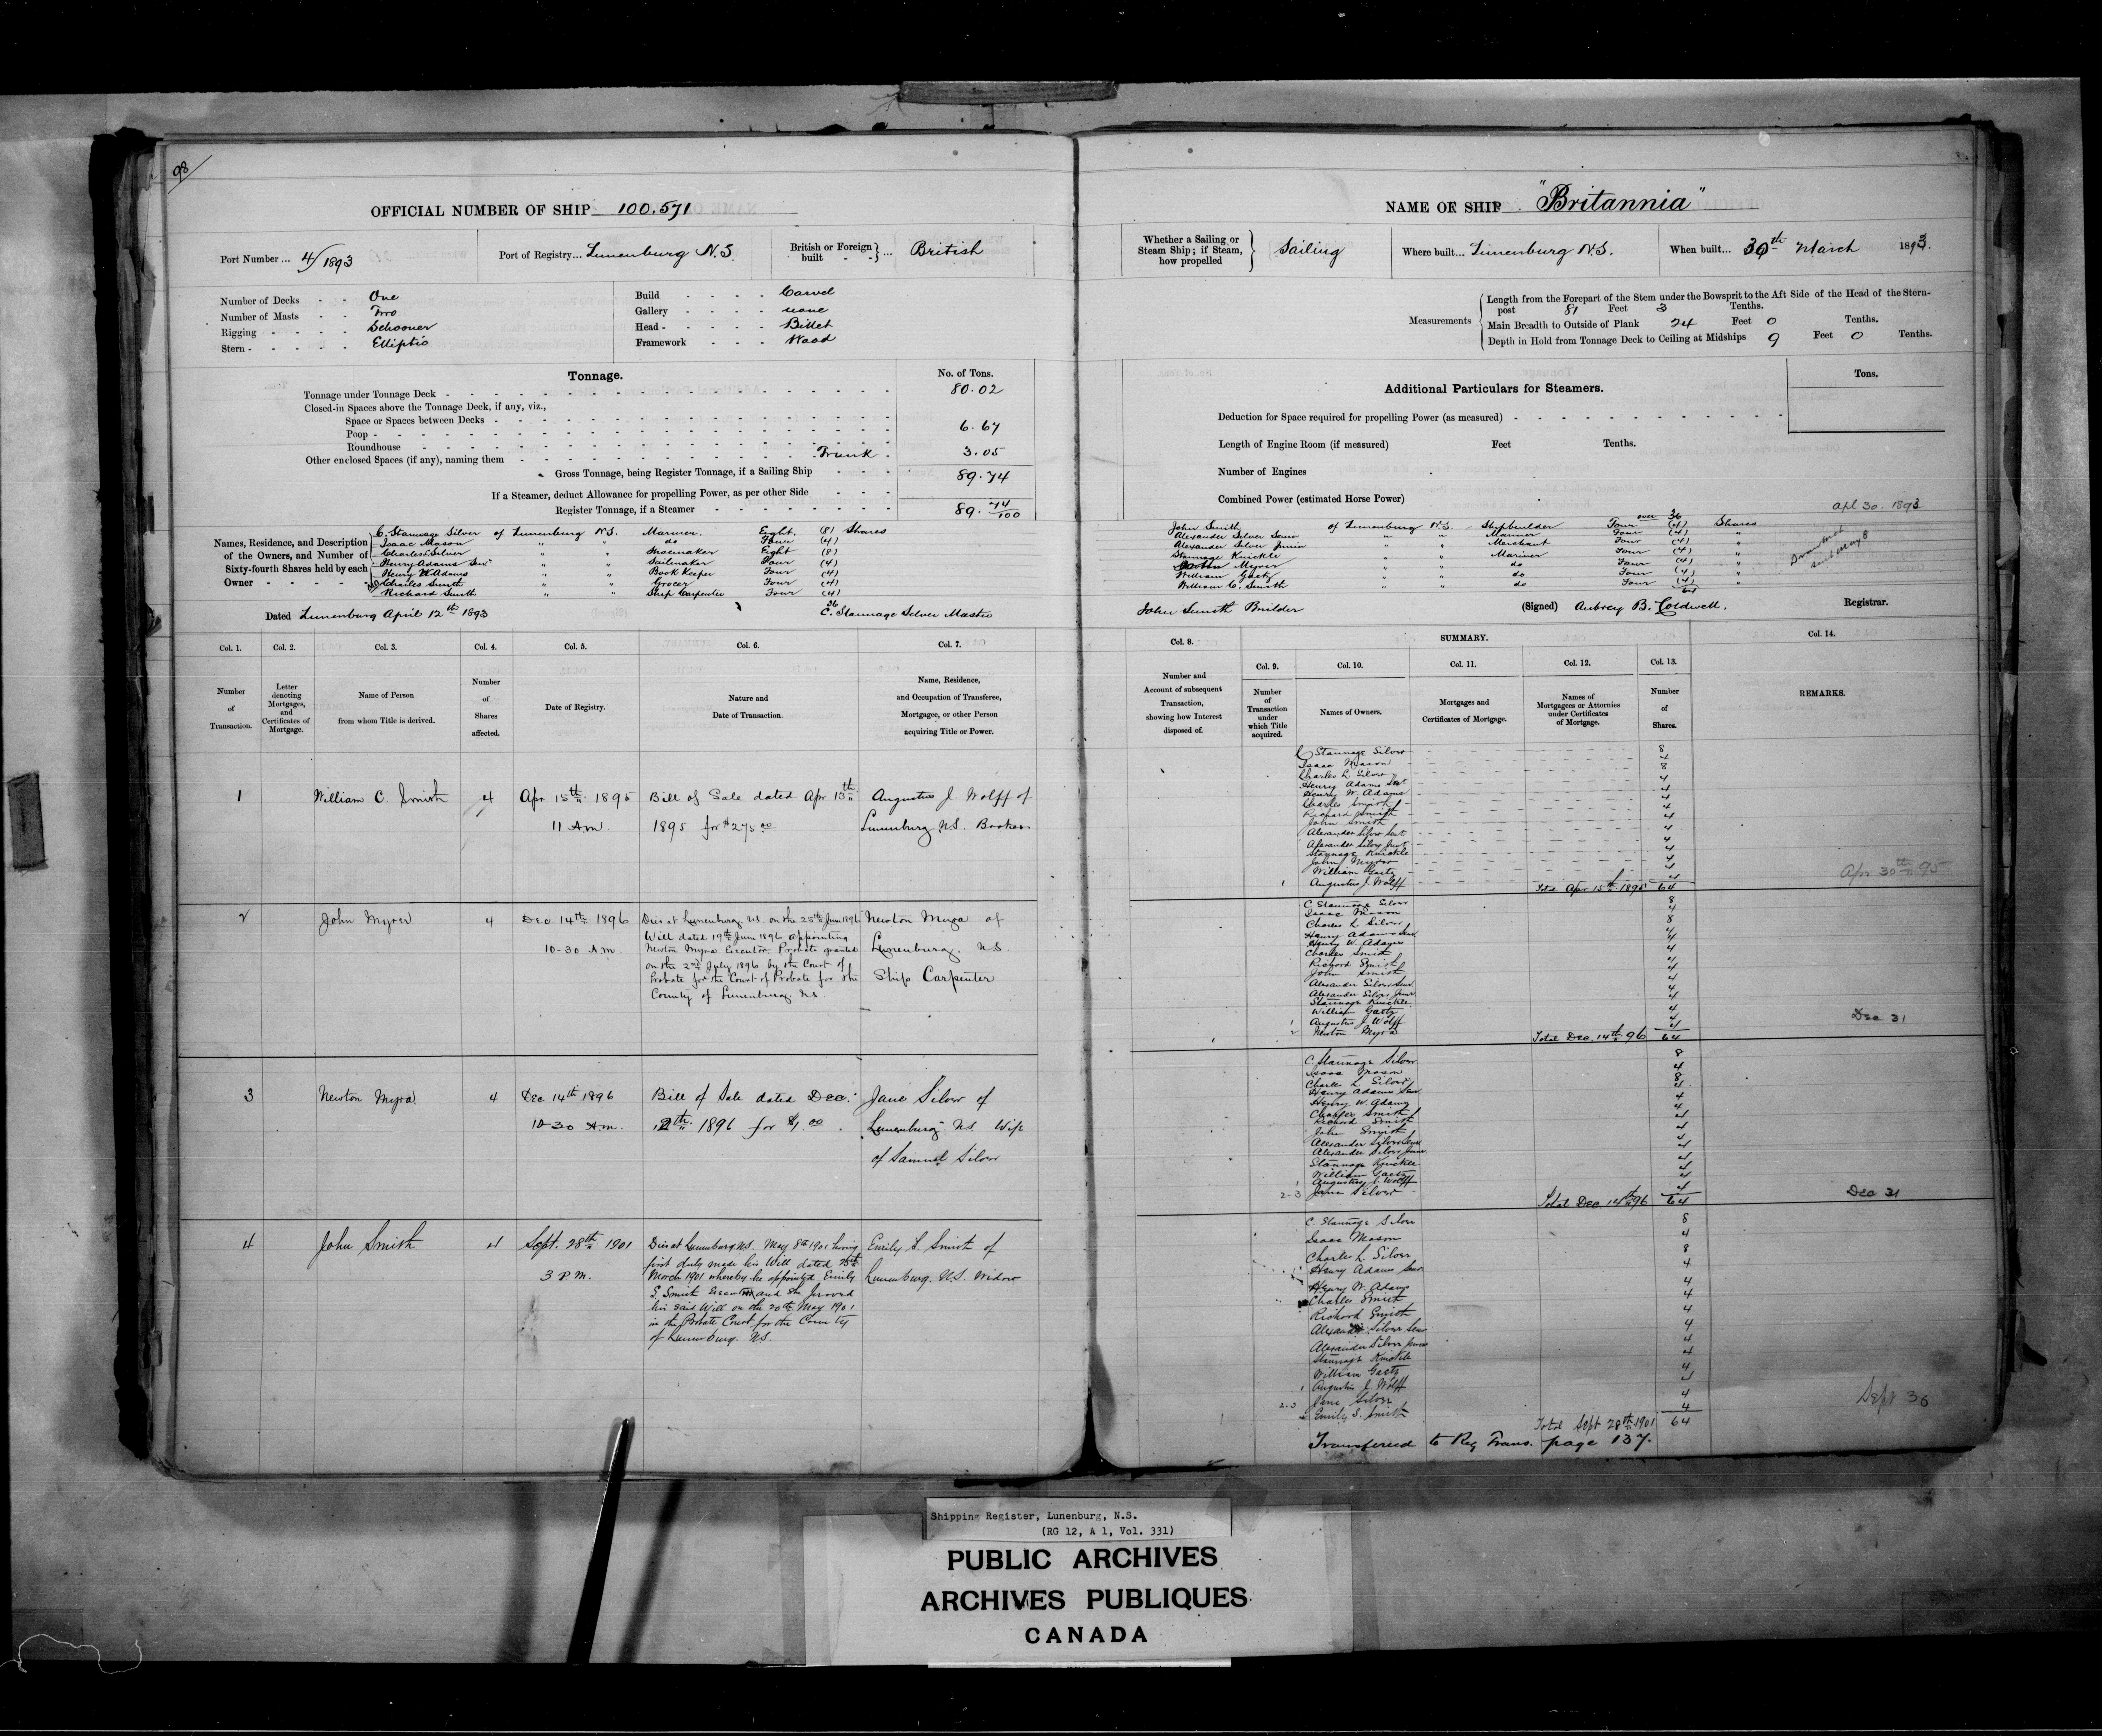 98
OFFICIAL NUMBER OF SHIP 100.571
Port Number ... 4/1893
Port of Registry... Lunenburg N.S.
British or Foreign built } ... British
Number of Decks - - One
Number of Masts - - Two
Rigging - - - - Schooner
Stern - - - - - Elliptic
Build - - - - Carvel
Gallery - - - - none
Head - - - - - Billet
Framework - - - Wood
Tonnage.
No. of Tons.
Tonnage under Tonnage Deck 80.02
Closed-in Spaces above the Tonnage Deck, if any, viz.,
Space or Spaces between Decks
Poop 6.67
Roundhouse
Other enclosed Spaces (if any), naming them Trunk 3.05
Gross Tonnage, being Register Tonnage, if a Sailing Ship 89.74
If a Steamer, deduct Allowance for propelling Power, as per other Side
Register Tonnage, if a Steamer 89. 74/100
Names, Residence, and Description of the Owners, and Number of Sixty-fourth Shares held by each Owner
C. Stannage Silver of Lunenburg N.S. Mariner. Eight. (8) Shares
Isaac Mason " " do Four (4)
Charles L. Silver " " Shoemaker Eight (8)
Henry Adams Senr " " Sailmaker Four (4)
Henry W. Adams " " Book Keeper Four (4)
Charles Smith " " Grocer Four (4)
Richard Smith " " Ship Carpenter Four (4)
36
Dated Lunenburg April 12th 1893
C. Stannage Silver Master
Col. 1. Col. 2. Col. 3. Col. 4. Col. 5. Col. 6. Col. 7.
Number of Transaction.
Letter denoting Mortgages, and Certificates of Mortgage.
Name of Person from whom Title is derived.
Number of Shares affected.
Date of Registry.
Nature and Date of Transaction.
Name, Residence, and Occupation of Transferee, Mortgagee, or other Person acquiring Title or Power.
1 William C. Smith 4 Apr 15th 1895 Bill of Sale dated Apr 13th Augustus J. Wolff of
11 A.M. 1895 for $275.00 Lunenburg N.S.
2 John Myrer 4 Dec. 14th 1896 Dies at Lunenburg, N.S. on the 25th June 1896 Newton Myra of
10-30 A.M. Will dated 19th June 1896 appointing Lunenburg. N.S.
Newton Myra Executor. Probate granted Ship Carpenter
on the 2nd July 1896 by the Court of
Probate for the Court of Probate for the
County of Lunenburg. N.S.
3 Newton Myra 4 Dec 14th 1896 Bill of Sale dated Dec. Jane Silver of
10-30 A.M. 12th 1896 for $1.00 Lunenburg N.S. Wife
of Samuel Silver
4 John Smith 4 Sept. 28th 1901 Dies at Lunenburg N.S. May 8th 1901 having Emily S. Smith of
3 P.M. first duly made his Will dated Lunenburg. N.S. Widow
March 1901 whereby he appointed Emily
S. Smith and she proved
his said Will on the 20th May 1901
in the Probate Court for the County
of Lunenburg. N.S.
NAME OF SHIP "Britannia"
Whether a Sailing or Steam Ship; if Steam, how propelled } Sailing
Where built... Lunenburg N.S.
When built... 30th March 1893.
Measurements
Length from the Forepart of the Stem under the Bowsprit to the Aft Side of the Head of the Stern-
post 81 Feet 3 Tenths.
Main Breadth to Outside of Plank 24 Feet 0 Tenths.
Depth in Hold from Tonnage Deck to Ceiling at Midships 9 Feet 0 Tenths.
Additional Particulars for Steamers.
Tons.
Deduction for Space required for propelling Power (as measured)
Length of Engine Room (if measured) Feet Tenths.
Number of Engines
Combined Power (estimated Horse Power)
Apl 30. 1893
over 36
John Smith of Lunenburg N.S. Shipbuilder Four (4) Shares
Alexander Silver Senior " " Mariner Four (4) "
Alexander Silver Junior " " Merchant Four (4) "
Stannage Knickle " " Mariner Four (4) "
John Myrer " " do Four (4) "
William Gaetz " " do Four (4) "
William C. Smith " " do Four (4) "
64
John Smith Builder
(Signed) Aubrey B. Coldwell. Registrar.
Col. 8. SUMMARY. Col. 14.
Col. 9. Col. 10. Col. 11. Col. 12. Col. 13.
Number and Account of subsequent Transaction, showing how Interest disposed of.
Number of Transaction under which Title acquired.
Names of Owners.
Mortgages and Certificates of Mortgage.
Names of Mortgagees or Attornies under Certificates of Mortgage.
Number of Shares.
REMARKS.
C Stannage Silver 8
Isaac Mason 4
Charles L. Silver 8
Henry Adams Senr 4
Henry W. Adams 4
Charles Smith 4
Richard Smith 4
John Smith 4
Alexander Silver Senr 4
Alexander Silver Junr 4
Stannage Knickle 4
John Myrer 4
William Gaetz 4
1 Augustus J. Wolff 4
Total Apr 15th 1895 64
Apr 30th 95
C. Stannage Silver 8
Isaac Mason 4
Charles L Silver 8
Henry Adams Senr 4
Henry W. Adams 4
Charles Smith 4
Richard Smith 4
John Smith 4
Alexander Silver Senr 4
Alexander Silver Junr 4
Stannage Knickle 4
William Gaetz 4
1 Augustus J. Wolff 4
2 Newton Myra 4
Total Dec. 14th 96 64
Dec 31
C. Stannage Silver 8
Isaac Mason 4
Charles L Silver 8
Henry Adams Senr 4
Henry W. Adams 4
Charles Smith 4
Richard Smith 4
John Smith 4
Alexander Silver Senr 4
Alexander Silver Junr 4
Stannage Knickle 4
William Gaetz 4
1 Augustus J. Wolff 4
2-3 Jane Silver 4
Total Dec 14th 96 64
Dec 31
C. Stannage Silver 8
Isaac Mason 4
Charles L. Silver 8
Henry Adams Senr 4
Henry W. Adams 4
Charles Smith 4
Richard Smith 4
Alexander Silver Senr 4
Alexander Silver Junior 4
Stannage Knickle 4
William Gaetz 4
1 Augustus J. Wolff 4
2-3 Jane Silver 4
4 Emily S. Smith 4
Total Sept 28th 1901 64
Sept 30
Transferred to Reg Trans. page 137.
Shipping Register, Lunenburg, N.S.
(RG 12, A 1, Vol. 331)
PUBLIC ARCHIVES
ARCHIVES PUBLIQUES
CANADA